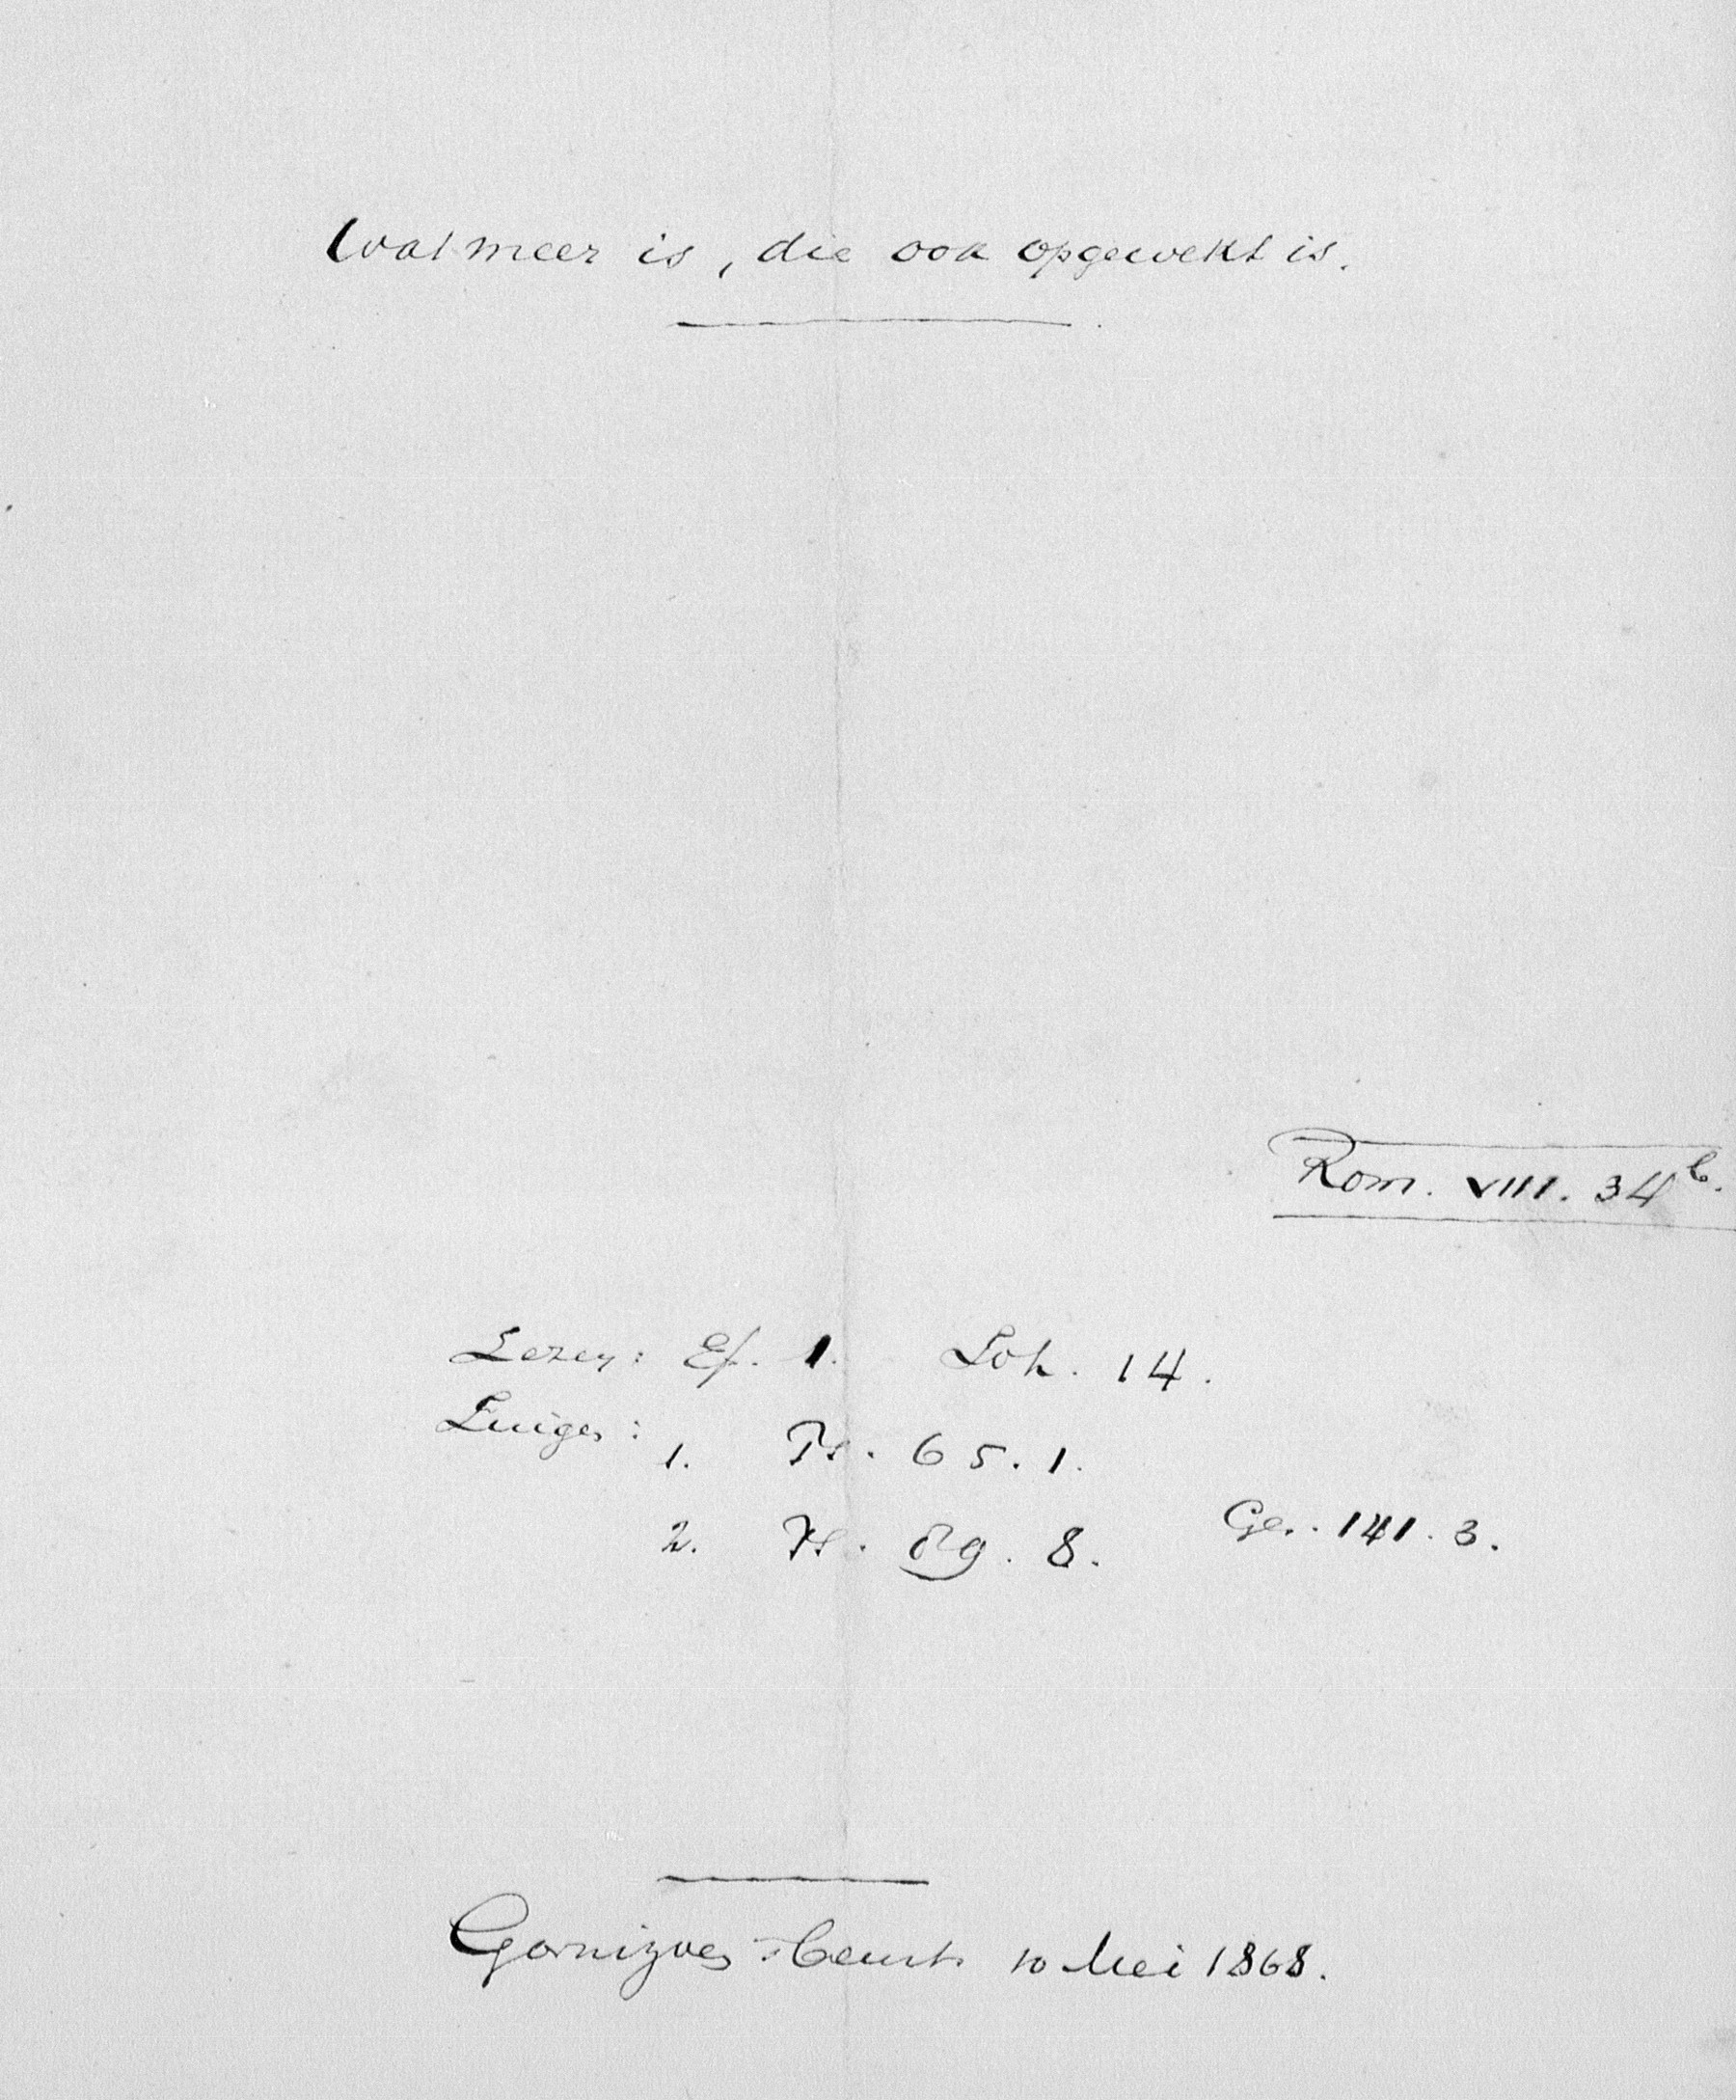 Wat meer is, die ook opgewekt is.
Rom. VIII. 34b.
Lezen: Ef. 1. Joh. 14.
Zingen:
1. Ps. 65. 1.
2. Ps. 89. 8. Gez. 141. 3.
Garnizoens Beurt. 10 Mei 1868.